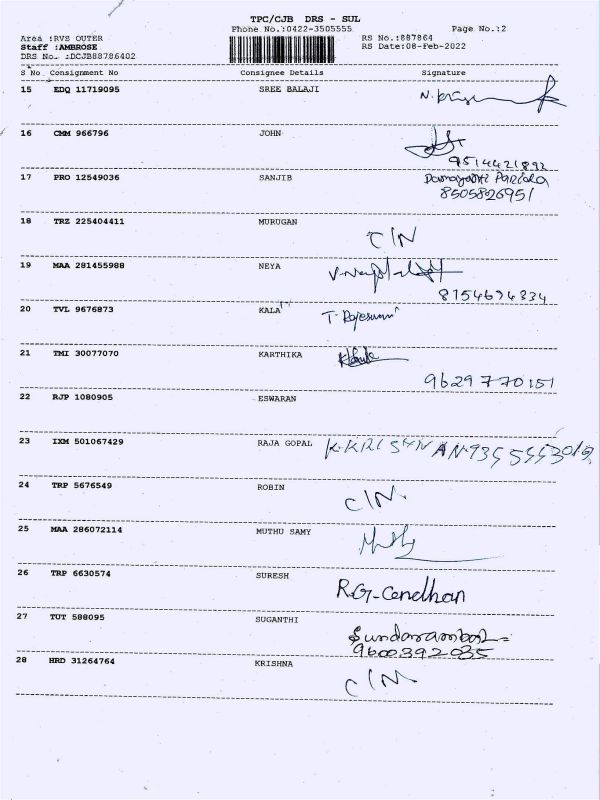 TPC/CJB DRS - SUL
Phone No.:0422-3505555 Page No.:2
Area :RVS OUTER RS No.:887864
Staff :AMBROSE RS Date:08-Feb-2022
DRS No. :DCJB88786402
S No Consignment No Consignee Details Signature
15 EDQ 11719095 SREE BALAJI
16 CMM 966796 JOHN
9514421892
17 PRO 12549036 SANJIB
8505826951
18 TRZ 225404411 MURUGAN
C/N
19 MAA 281455988 NEYA
8754694334
20 TVL 9676873 KALA T. Rajeswari
21 TMI 30077070 KARTHIKA
9629770151
22 RJP 1080905 ESWARAN
23 IXM 501067429 RAJA GOPAL
24 TRP 5676549 ROBIN
C/N.
25 MAA 286072114 MUTHU SAMY
26 TRP 6630574 SURESH
R.G-Cendhan
27 TUT 588095 SUGANTHI
9600392035
28 HRD 31264764 KRISHNA
C/N.